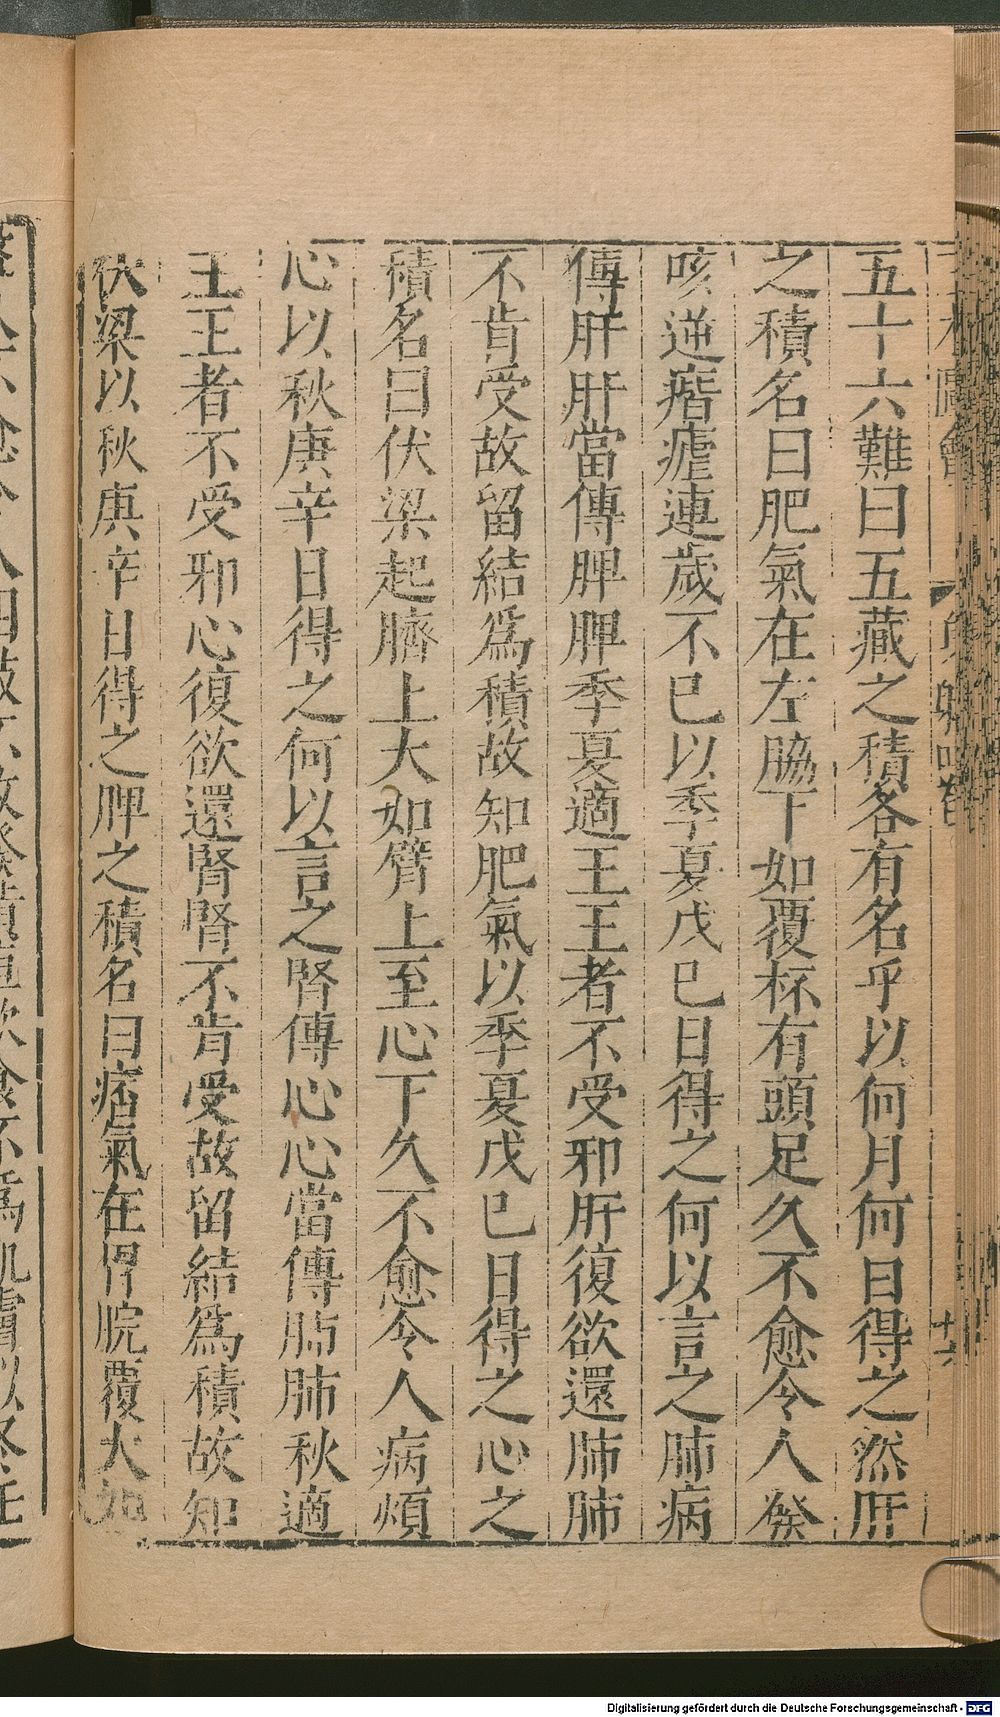 五十六難曰五藏之積各有名乎以何月何日得之然肝
之積名曰肥氣在左脇下如覆杯有頭足久不愈令人發
咳逆㾬瘧連歲不已以季夏戊已日得之何以言之肺病
傳肝肝當傳脾脾季夏適王王者不受邪肝復欲還肺肺
不肯受故留結爲積故知肥氣以季夏戊已日得之心之
積名曰伏梁起臍上大如臂上至心下久不愈令人病煩
心以秋庚辛日得之何以言之腎傳心心當傳肺肺秋適
王王者不受邪心復欲還腎腎不肯受故留結爲積故知
伏梁以秋庚辛日得之脾之積名曰痞氣在胃脘覆大如
十六
Digitalisierung gefördert durch die Deutsche Forschungsgemeinschaft - DFG